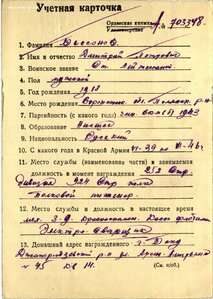 Учетная карточка
Орденская книжка
Удостоверение № 703348.
1. Фамилия
2. Имя и отчество Дмитрий Петрович
3. Воинское звание Ст. Лейтенант
4. Пол мужской
5. Год рождения 1918
6. Место рождения Воронежск. обл.
7. Партийность (с какого года) член ВКП(б) 1943
8. Образование Низшее
9. Национальность Русский
10. С какого года в Красной Армии VI-39 по VI-46г.
11. Место службы (наименование части) и занимаемая
должность в момент награждения 252 Стр.
Дивизия 924 Стр. полк
Полковой инженер.
12. Место службы и должность в настоящее время
Электро-сварщик
13. Домашний адрес награжденного г. Баку
р-н ул.
№ 45 кв 14.
(См. на об.)